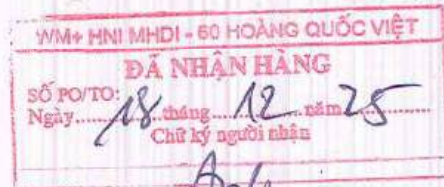 WM+ HNI MHDI - 60 HOÀNG QUỐC VIỆT
ĐÃ NHẬN HÀNG
SỐ PO/TO:
Ngày.....18.....tháng.....12.....năm 25.....
Chữ ký người nhận